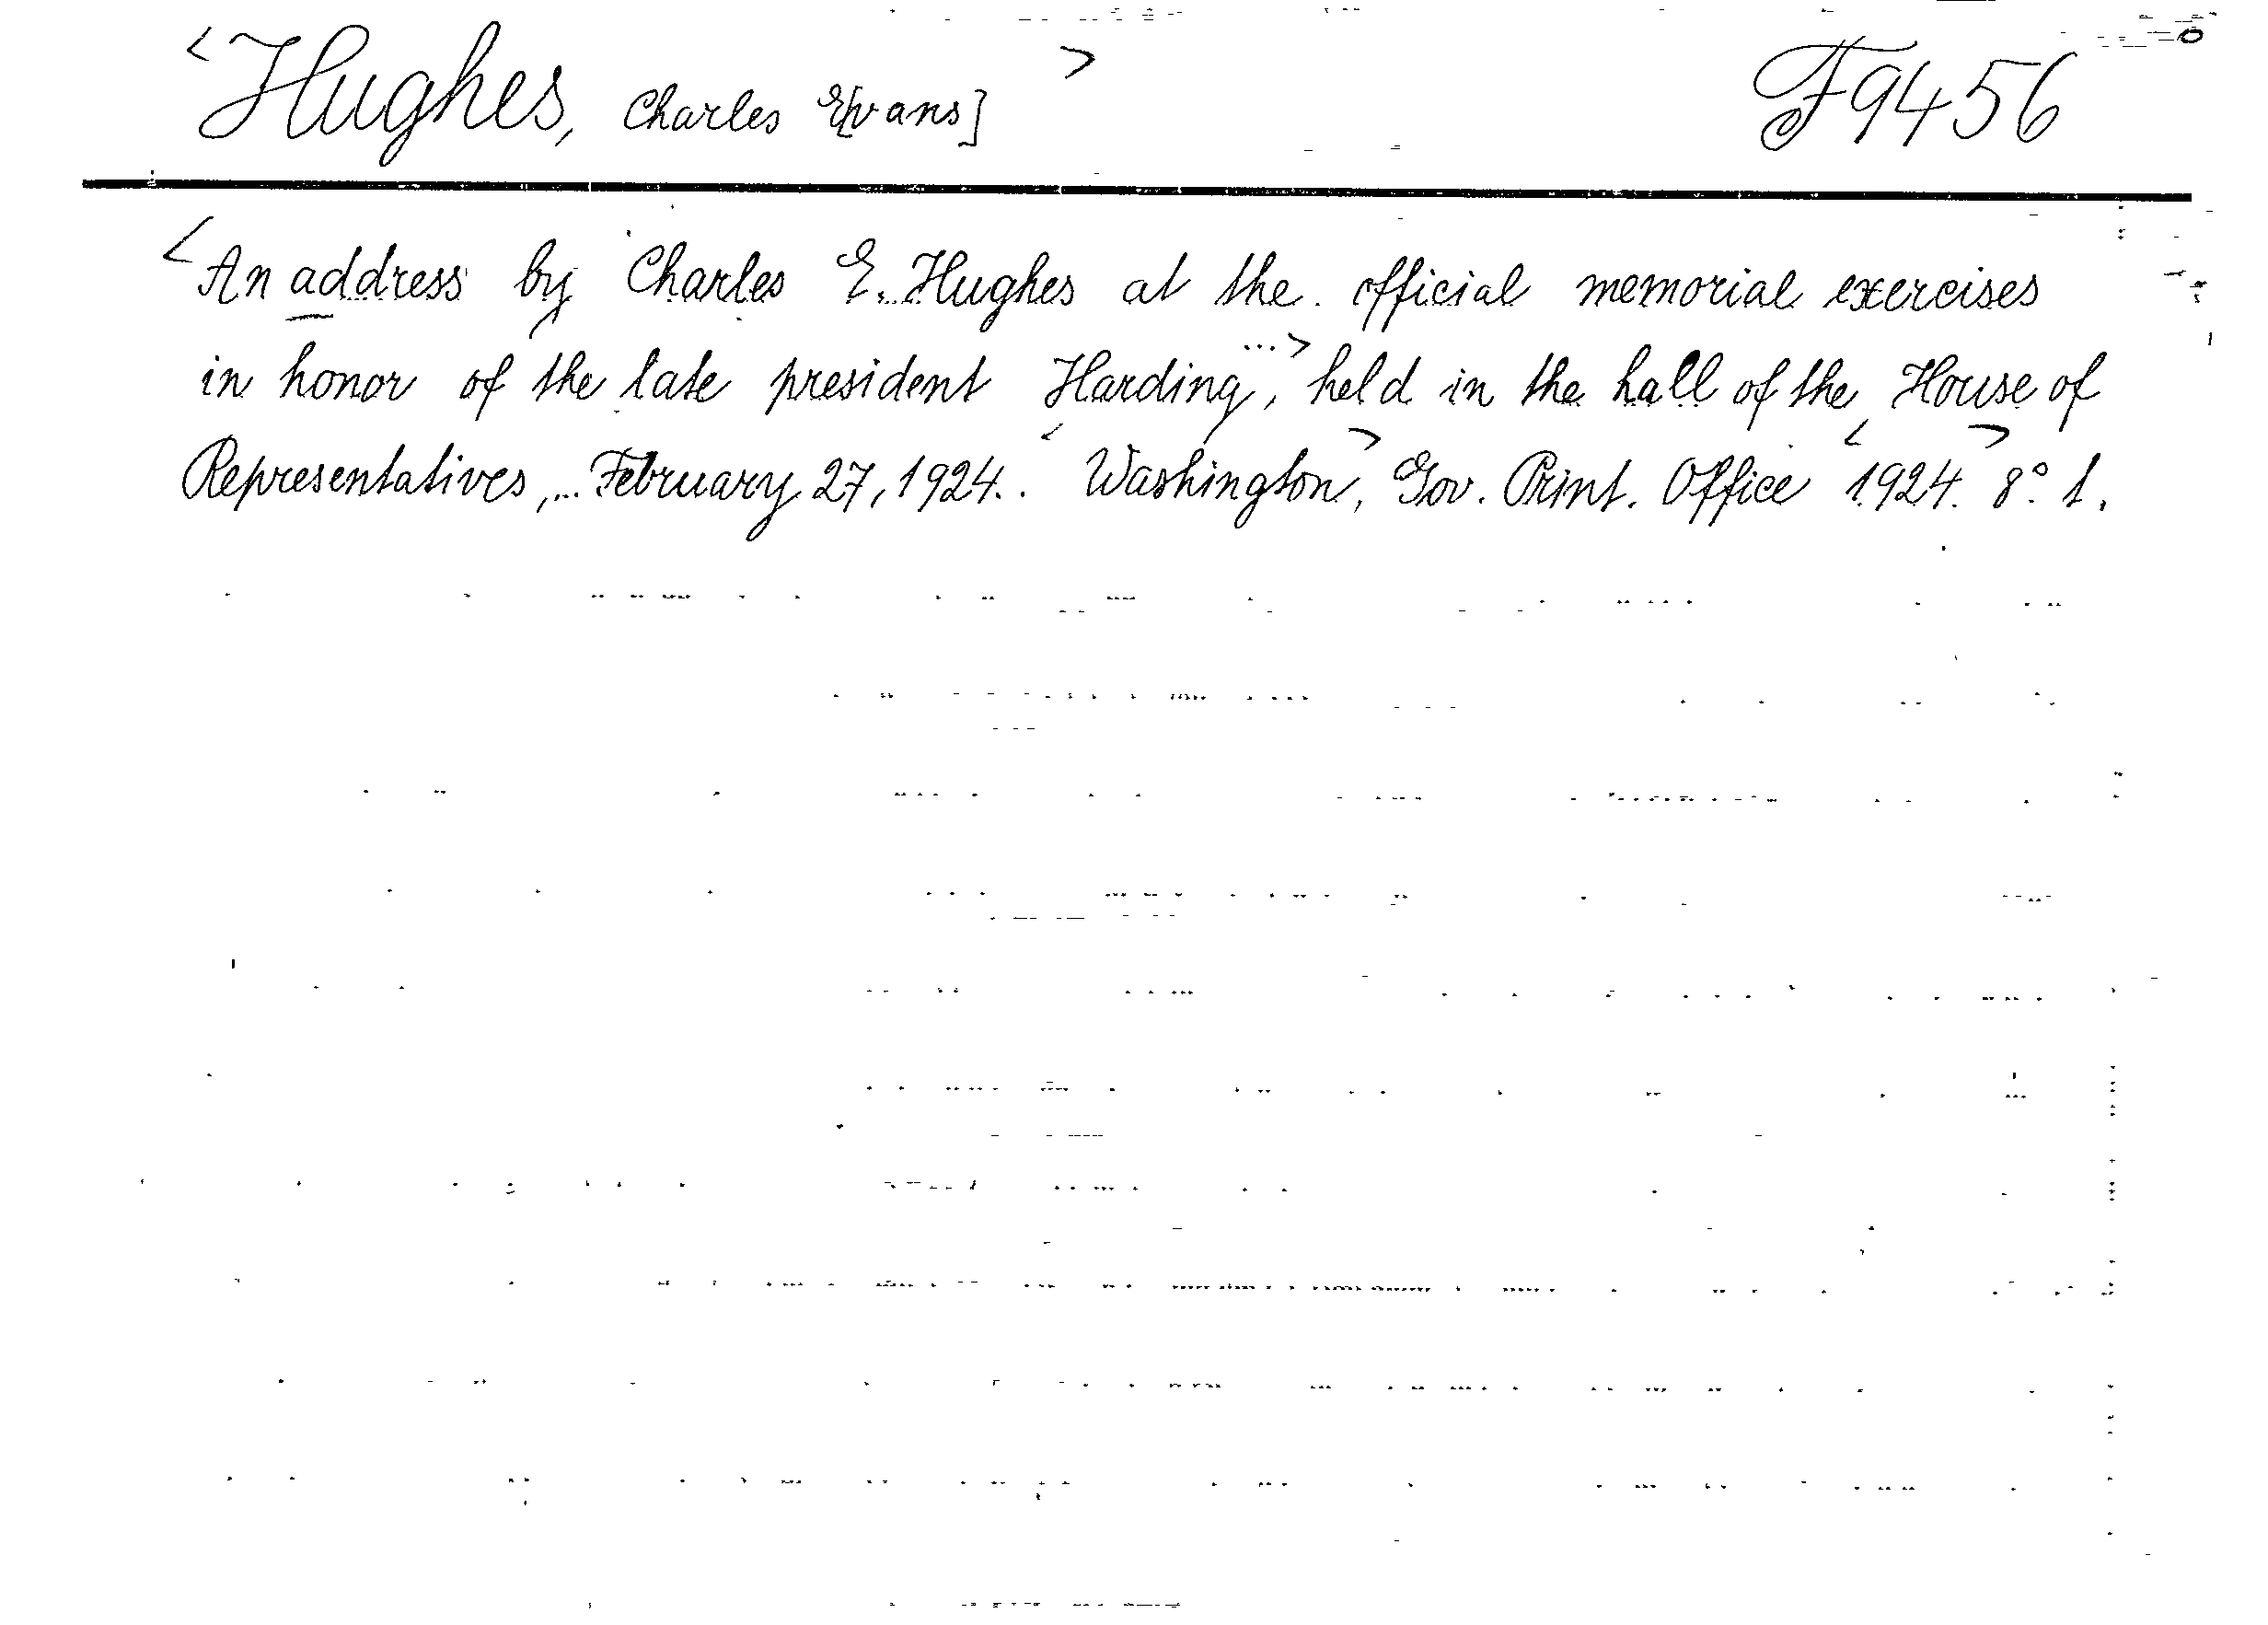 <Hughes, Charles E[vans]> F9456
<An address by Charles E. Hughes at the official memorial exercises
in honor of the late president Harding, ...> held in the hall of the House of
Representatives, ... February 27, 1924.. <Washington>, Gov. Print. Office <1924.> 8°. 1.